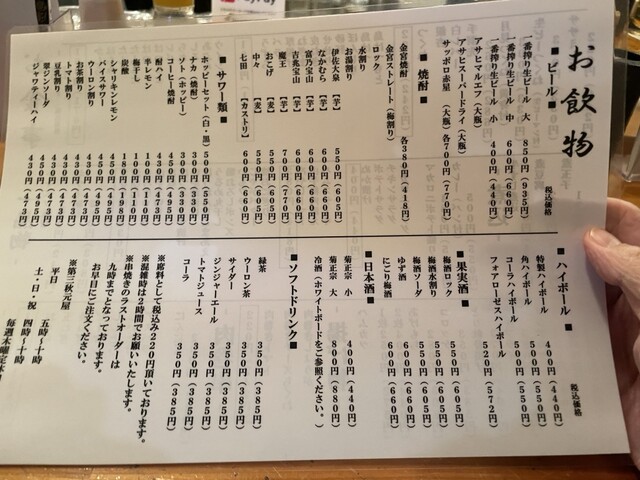 お飲物
税込価格
■ビール■
一番搾り生ビール 大 850円(935円)
一番搾り生ビール 中 600円(660円)
一番搾り生ビール 小 400円(440円)
アサヒマルエフ(大瓶)
アサヒスーパードライ(大瓶)
サッポロ赤星 (大瓶)各700円(770円)
■焼酎■
金宮焼酎 各380円(418円)
金宮ストレート(梅割り)
ロック
水割り
お湯割り
伊佐大泉 【芋】 550円(605円)
なかむら 【芋】 600円(660円)
富乃宝山 【芋】 600円(660円)
吉兆宝山 【芋】 600円(660円)
魔王 【芋】 700円(770円)
おこげ 【麦】 550円(605円)
中々 【麦】 550円(605円)
七田 【カストリ】 600円(660円)
■サワー類■
ホッピーセット(白・黒) 500円(550円)
ナカ(焼酎) 300円(330円)
ソト(ホッピー) 300円(330円)
コーヒー焼酎 450円(495円)
酎ハイ 430円(473円)
半レモン 100円(110円)
梅干し 100円(110円)
炭酸 180円(198円)
シャリキンレモン 450円(495円)
バイスサワー 450円(495円)
ウーロン割り 430円(473円)
お茶割り 430円(473円)
トマト割り 450円(495円)
豆乳割り 450円(495円)
翠ジンソーダ 450円(495円)
ジャワティーハイ 430円(473円)
税込価格
■ハイボール■
特製ハイボール 400円(440円)
角ハイボール 500円(550円)
コーラハイボール 500円(550円)
フォアローゼスハイボール 520円(572円)
■果実酒■
梅酒ロック 550円(605円)
梅酒水割り 550円(605円)
梅酒ソーダ 550円(605円)
ゆず酒 600円(660円)
にごり梅酒 600円(660円)
■日本酒■
菊正宗 小 400円(440円)
菊正宗 大 800円(880円)
冷酒(ホワイトボードをご参照ください。)
■ソフトドリンク■
緑茶 350円(385円)
ウーロン茶 350円(385円)
サイダー 350円(385円)
ジンジャーエール 350円(385円)
トマトジュース 350円(385円)
コーラ 350円(385円)
※席料として税込み220円頂いております。
※混雑時は2時間でお願いいたします。
※串焼きのラストオーダーは
九時までとなっております。
お早目にご注文ください。
※第三秋元屋
平日 五時〜十時
土・日・祝 四時〜十時
毎週木曜定休